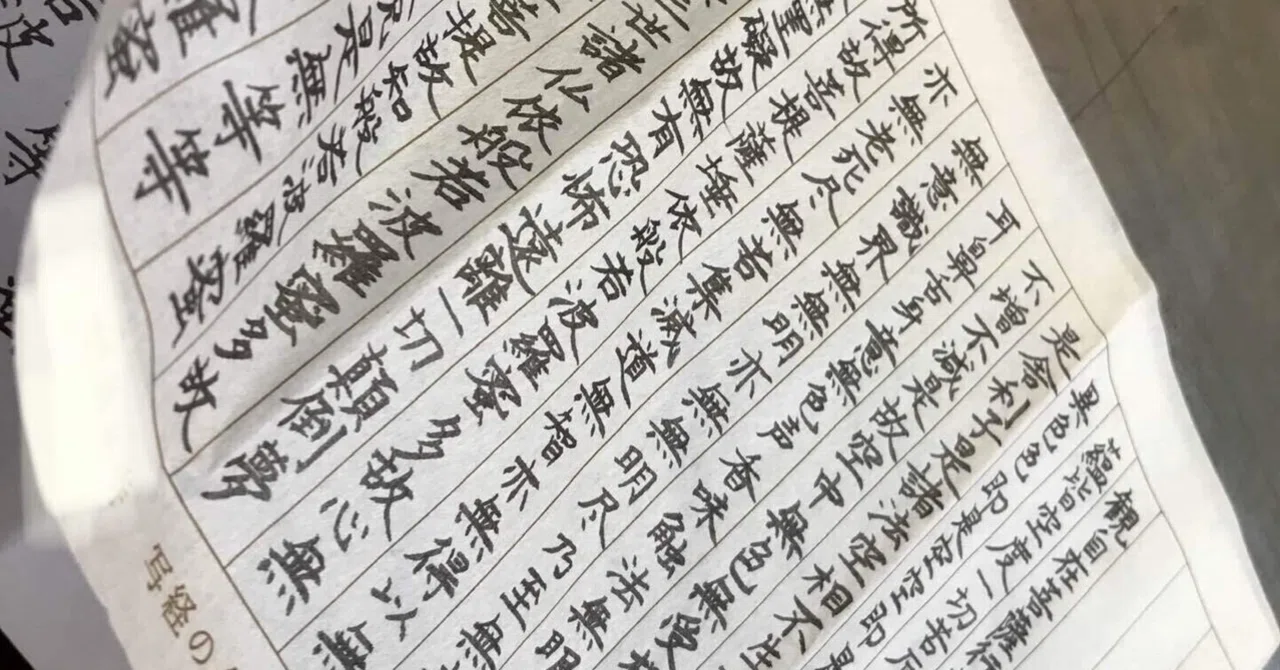 観自在菩薩行
蘊皆空度一切苦厄
異色色即是空空即是
是舎利子是諸法空相不生
不増不減是故空中無色無受
耳鼻舌身意無色声香味触法無眼
無意識界無無明亦無無明尽乃至無
亦無老死尽無苦集滅道無智亦無得以無
所得故菩提薩埵依般若波羅蜜多故心無
無罣礙故無有恐怖遠離一切顛倒夢
三世諸仏依般若波羅蜜多故
菩提故知般若波羅蜜
呪是無等等
羅蜜
写経の